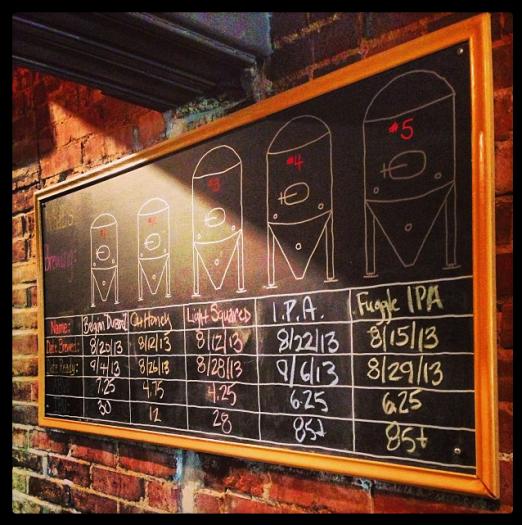 Brewing:
#3
#4
#5
Name: Light Squared I.P.A. Fuggle IPA
Date Brewed: 8/20/13 8/12/13 8/22/13 8/15/13
Date Ready: 9/4/13 8/26/13 8/28/13 9/6/13 8/29/13
7.25 4.75 4.25 6.25 6.25
30 12 28 85+ 85+